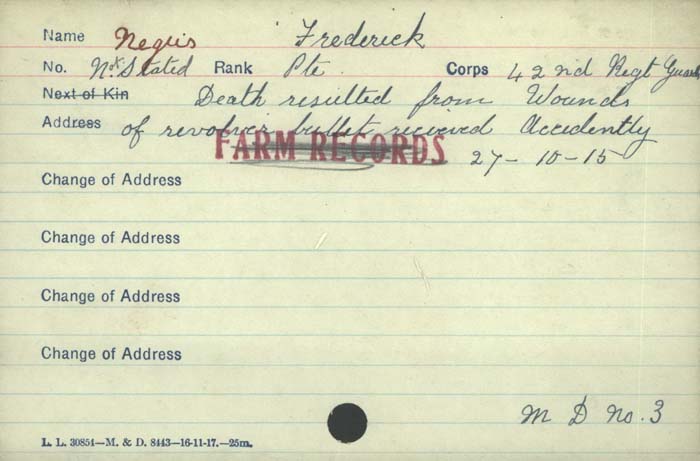 Name Negus Frederick
No. Not Stated Rank Pte. Corps 42nd Regt Guards
Next of Kin Death resulted from Wounds
Address of revolver bullet recieved Accidently
FARM RECORDS 27-10-15
Change of Address
Change of Address
Change of Address
Change of Address
M D No. 3
L. L. 30854—M. & D. 8443—16-11-17.—25m.